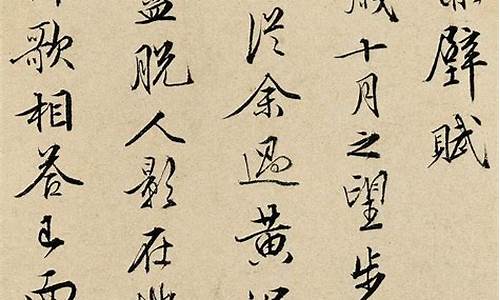 壁賦
歲十月之望步
從余過黃泥
盡脫人影在地
歌相答已而